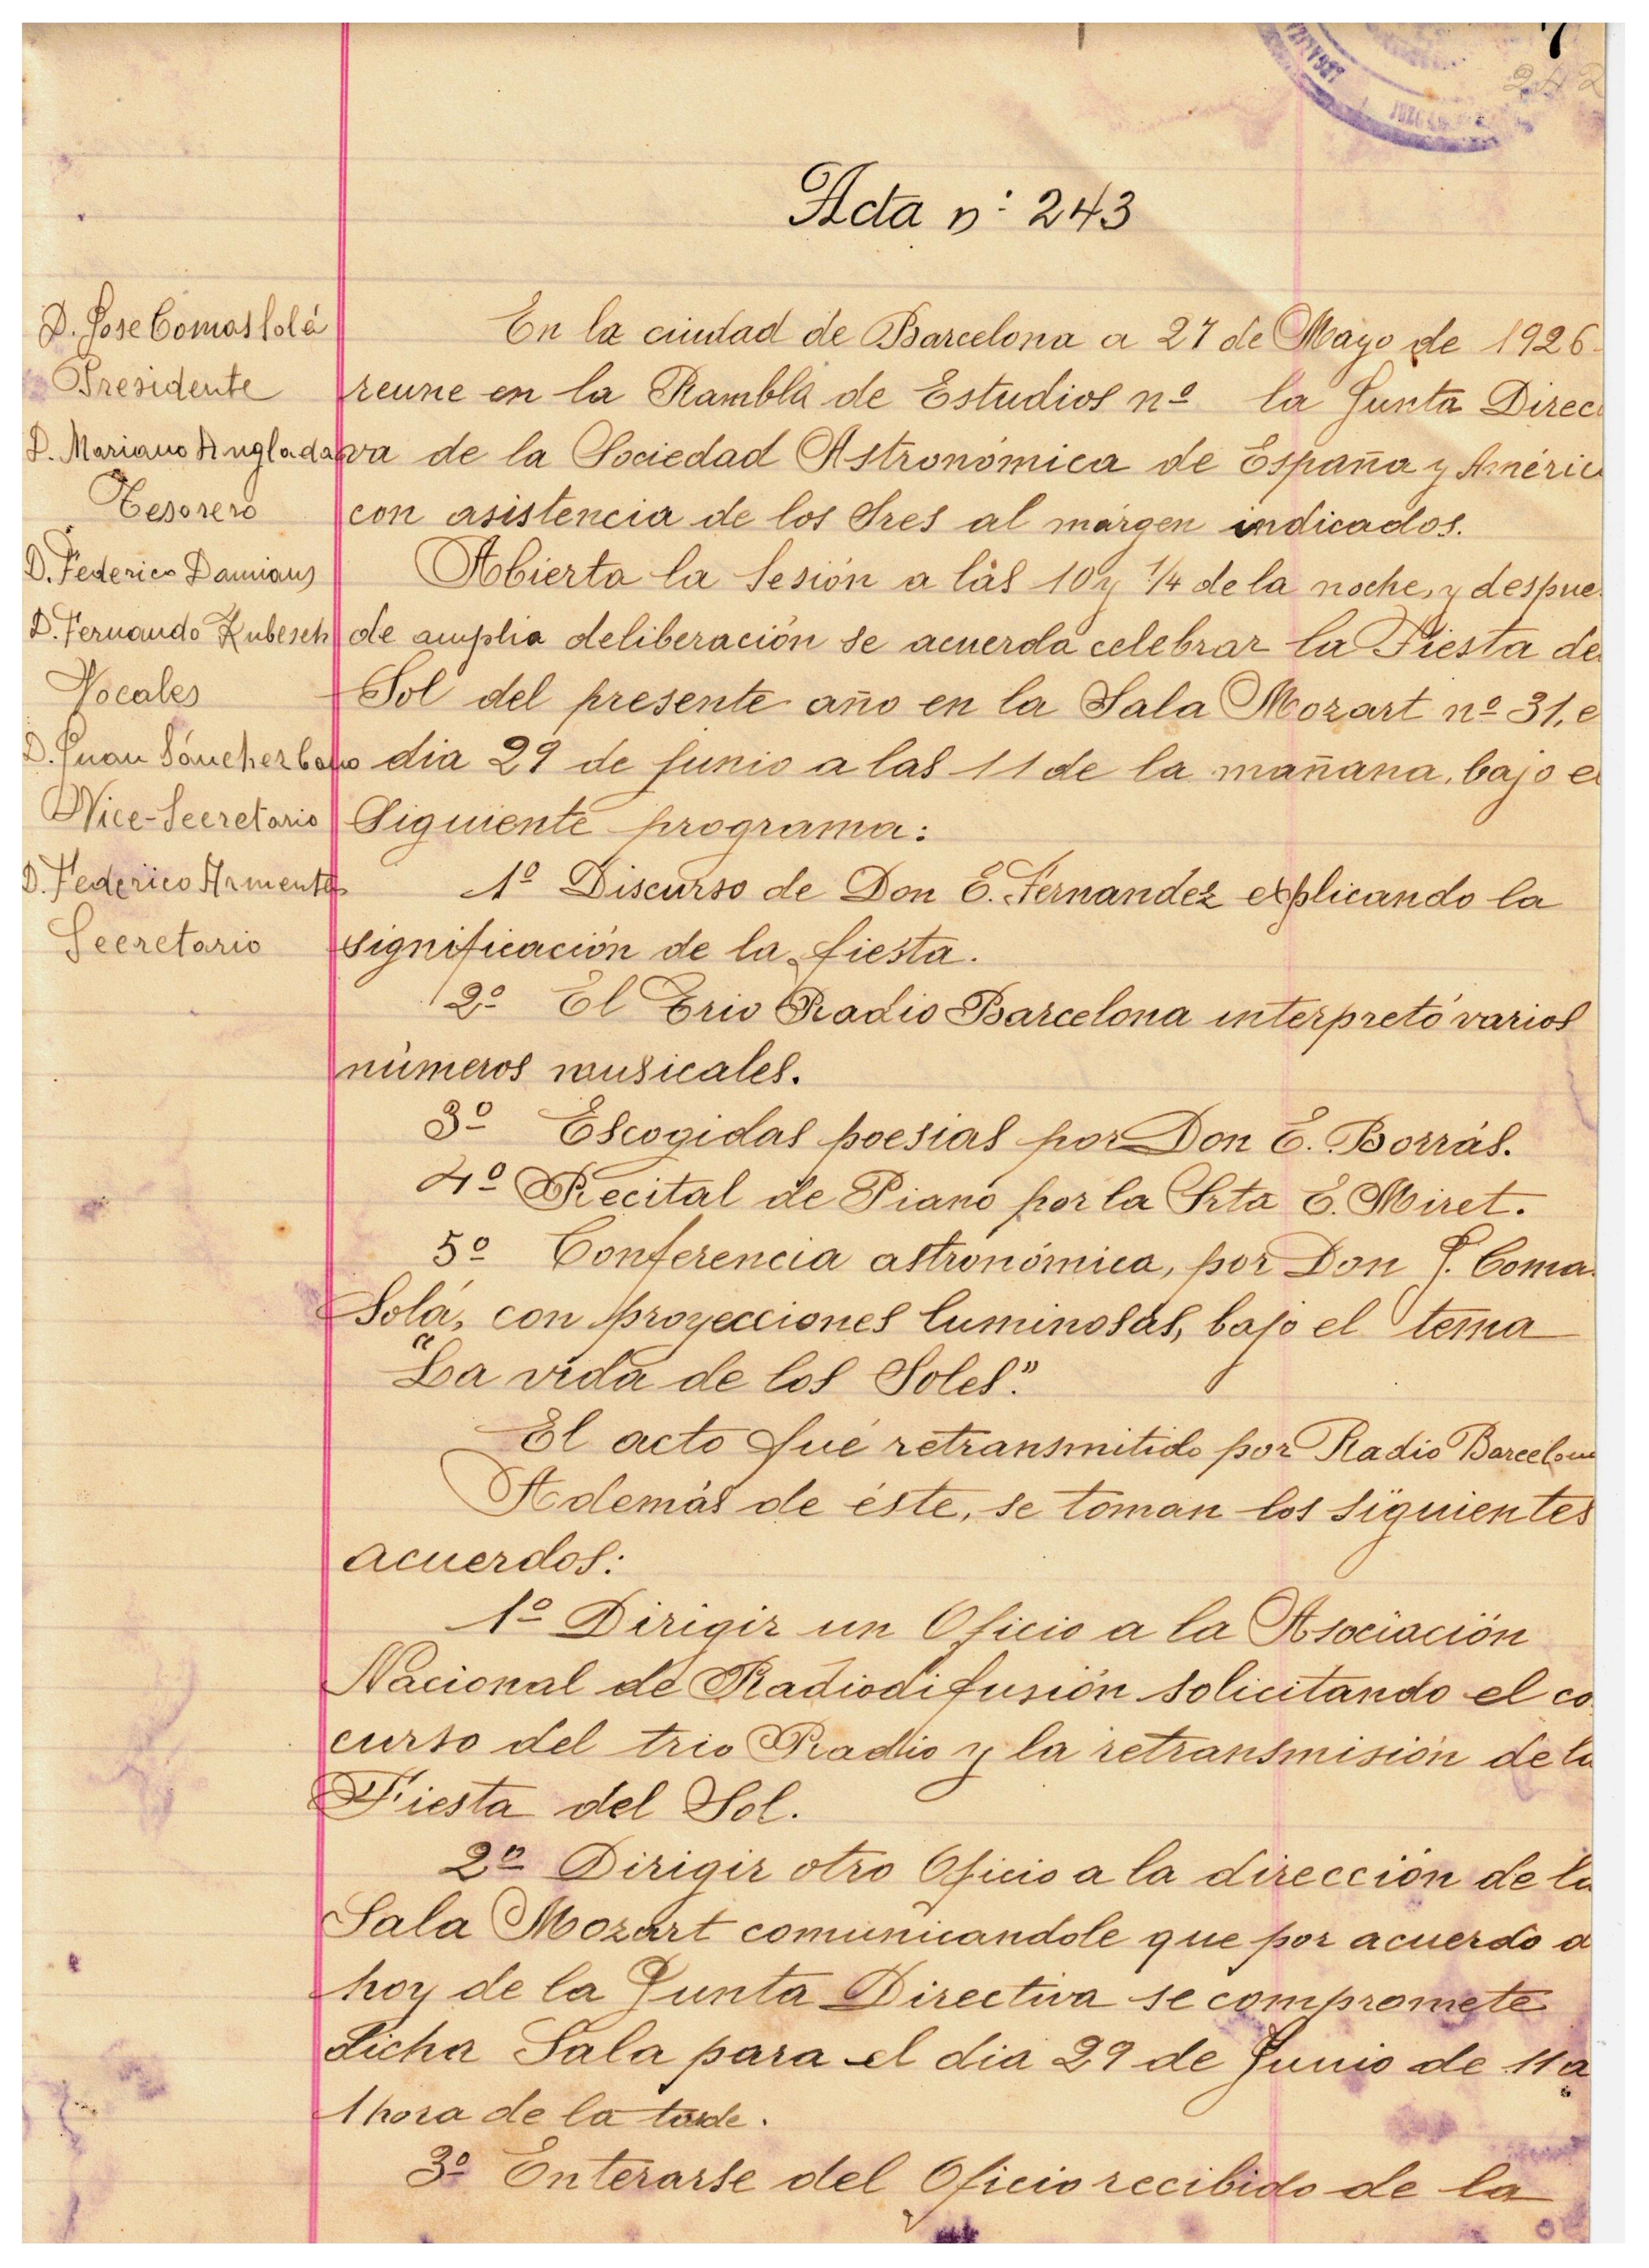 242
Acta nº 243
D. Jose Comas Solá
Presidente
D. Mariano Anglada
Tesorero
D. Federico Damians
D. Fernando Kubesch
Vocales
D. Juan Sáncher
Vice-Secretario
D. Federico Armenter
Secretario
En la ciudad de Barcelona a 27 de Mayo de 1926
reune en la Rambla de Estudios nº la Junta Direc
va de la Sociedad Astronómica de España y Améric
con asistencia de los Sres al márgen indicados.
Abierta la Sesión a las 10 y 1/4 de la noche, y despue
de amplia deliberación se acuerda celebrar la Fiesta de
Sol del presente año en la Sala Mozart nº 31, e
dia 29 de junio a las 11 de la mañana, bajo e
siguiente programa:
1º Discurso de Don E. Fernandez explicando la
significación de la fiesta.
2º El Trio Radio Barcelona interpretó varios
números musicales.
3º Escogidas poesias por Don E. Borrás.
4º Recital de Piano por la Srta E. Miret.
5º Conferencia astronómica, por Don J. Coma
Solá, con proyecciones luminosas, bajo el tema
"La vida de los Soles".
El acto fué retransmitido por Radio Barcelona
Además de éste, se toman los siguientes
acuerdos:
1º Dirigir un Oficio a la Asociación
Nacional de Radiodifusión solicitando el co
curso del trio Radio y la retransmisión de la
Fiesta del Sol.
2º Dirigir otro Oficio a la dirección de la
Sala Mozart comunicandole que por acuerdo d
hoy de la Junta Directiva se compromete
dicha Sala para el dia 29 de Junio de 11 a
1 hora de la tarde.
3º Enterarse del Oficio recibido de la